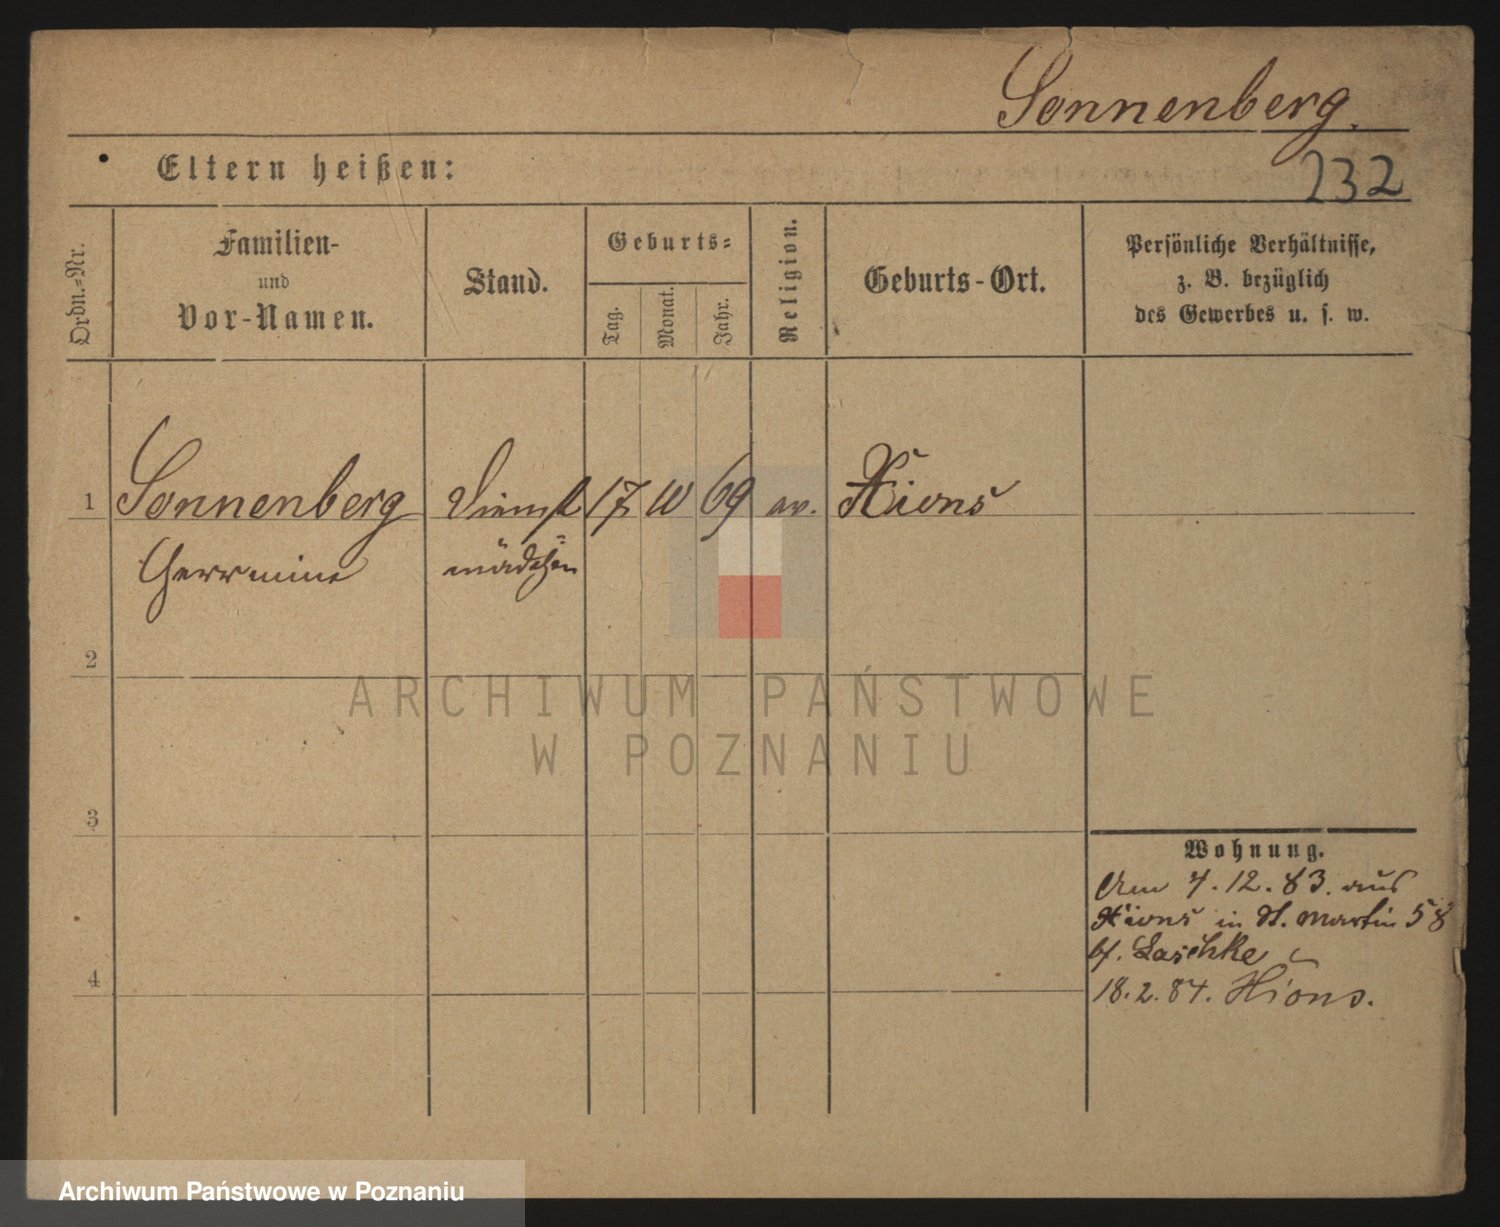 Sonnenberg.
Eltern heißen:
232
Ordn.=Nr.
Familien-
und
Vor-Namen.
Stand.
Geburts=
Tag.
Monat.
Jahr.
Religion.
Geburts-Ort.
Persönliche Verhältnisse,
z. B. bezüglich
des Gewerbes u. s. w.
1 Sonnenberg Dienst 17 10 69 ev. Xions
Hermine mädchen
2
3
4
Wohnung.
Am 7.12.83. aus
Xions in St. Martin 58
bf. Laschke
18.2.84. Xions.
ARCHIWUM PAŃSTWOWE
W POZNANIU
Archiwum Państwowe w Poznaniu